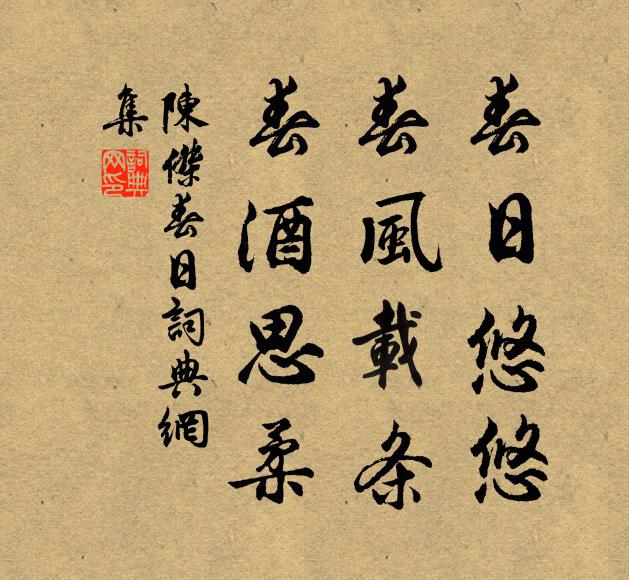 春日悠悠
春風載条
春酒思柔
陳傑春日詞典網
集
詞典
网印